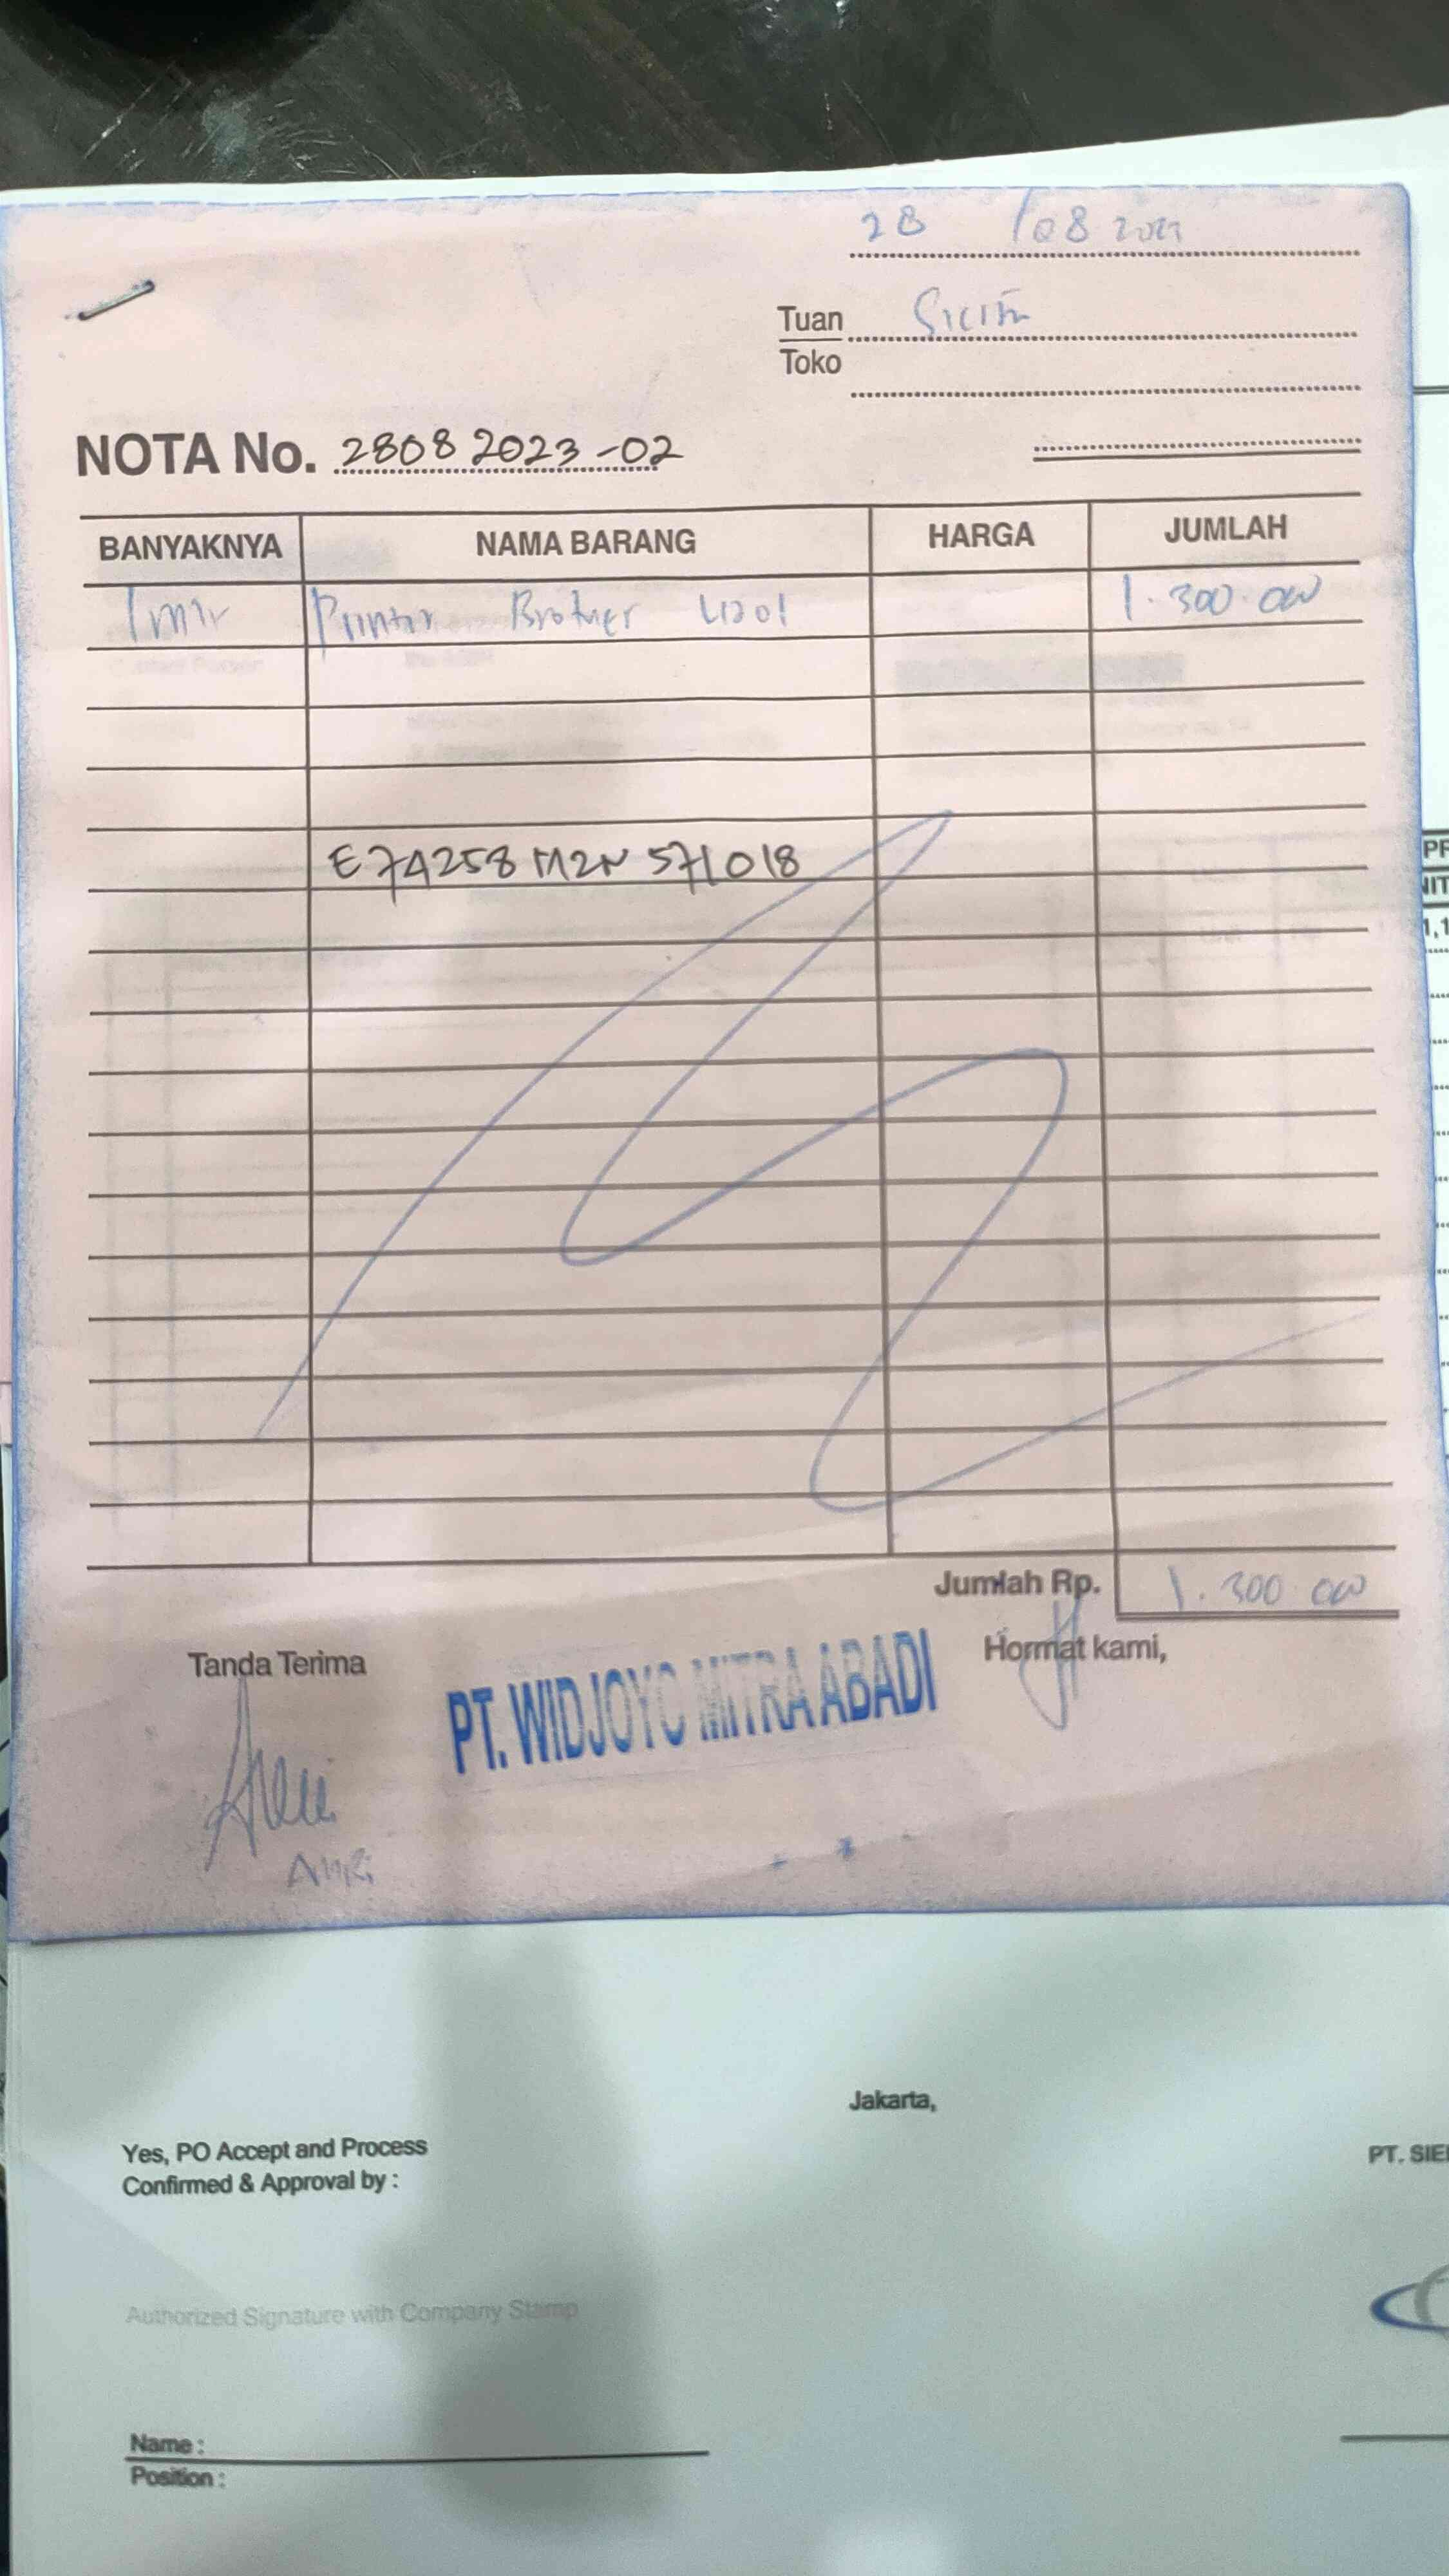 28 /08 2023
Tuan
Toko
NOTA No. 28082023-02
BANYAKNYA NAMA BARANG HARGA JUMLAH
Printer Brother 1201 1.300.000
E74258M2N571018
Jumlah Rp. 1.300 000
Tanda Terima
PT. WIDJOYO MITRA ABADI
Hormat kami,
Jakarta,
Yes, PO Accept and Process
Confirmed & Approval by :
PT. SIE
Authorized Signature with Company Stamp
Name :
Position :